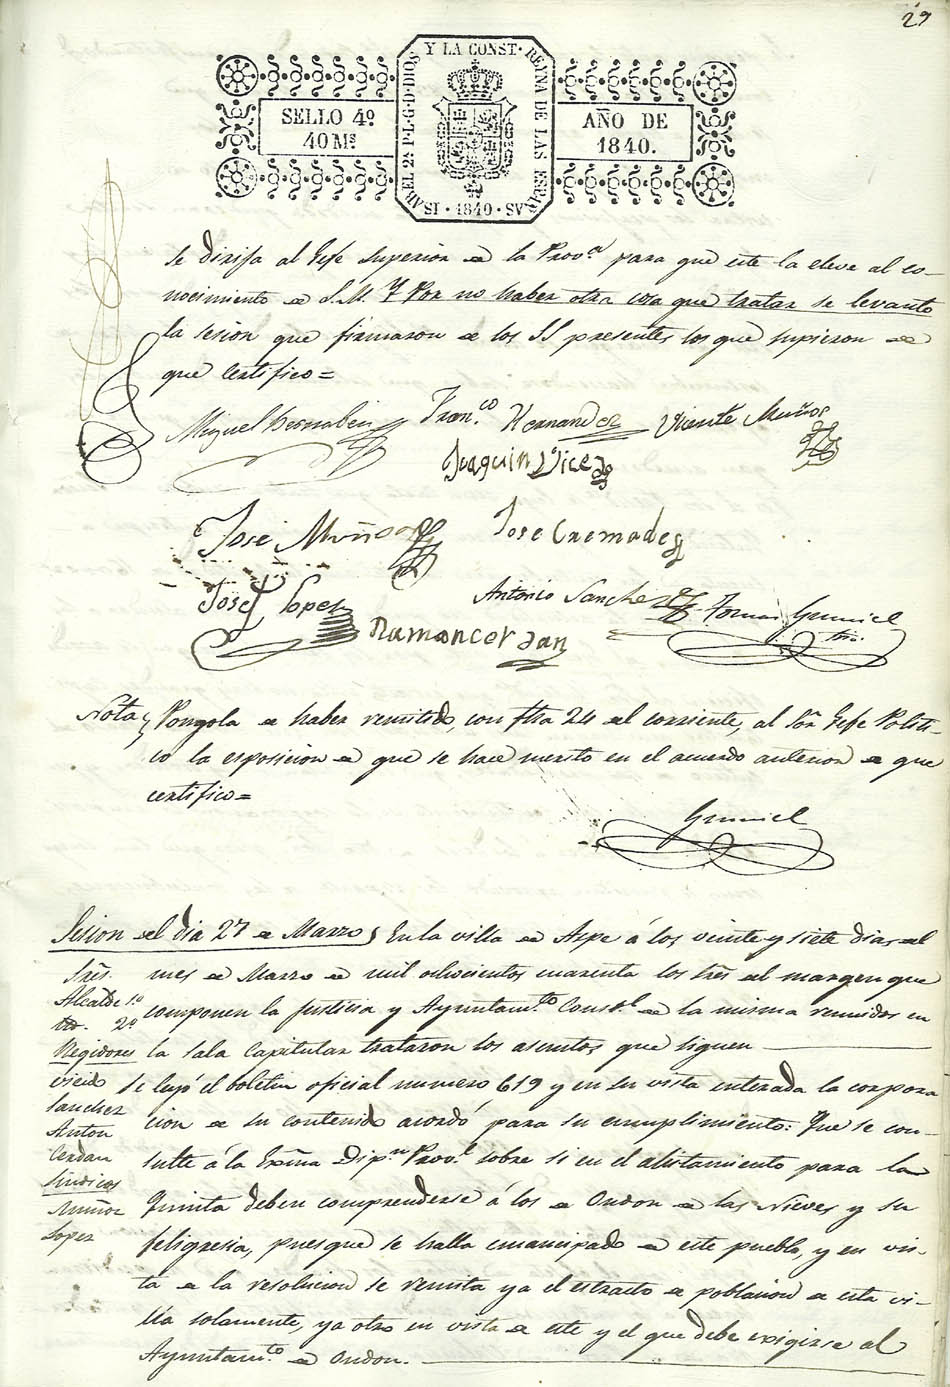 29
Y LA CONST. REYNA DE LAS ESPAÑAS
ISABEL 2ª P. L. G. D. DIOS
SELLO 4º
40 Mˢ
AÑO DE
1840.
1840
se dirija al Gefe Superior de la Provª para que este la eleve al co-
nocimiento de S.M. Y Por no haber otra cosa que tratar se levantó
la sesion que firmaron de los SS presentes los que supieron de
que Certifico=
Miguel Bernabeu
Franᶜᵒ Hernandez
Vicente Muñoz
Joaquin Vicedo
José Muñoz
Jose Cremades
José Lopez
Antonio Sanchez
Tomas
Ramon Cerdan
Nota
Pongola de haber remitido, con fha 24 del corriente, al Sôr Gefe Politi-
co la esposicion de que se hace merito en el acuerdo anterior de que
certifico=
Sesion del dia 27 de Marzo
En la villa de Aspe á los veinte y siete dias del
mes de Marzo de mil ochocientos cuarenta los sres del margen que
componen la Justicia y Ayuntamᵗᵒ Constˡ de la misma reunidos en
la Sala Capitular trataron los asuntos que siguen
Sres.
Alcalde 1º
2º
Regidores
Vicedo
Sanchez
Anton
Cerdan
Sindicos
Muñoz
Lopez
Se leyó el boletin oficial numero 619 y en su vista enterada la corpora
cion de su contenido acordó para su cumplimiento: Que se con-
sulte á la Exma Dipⁿ Provˡ sobre si en el alistamiento para la
Quinta deben comprenderse a los de Ondon de las Nieves y su
feligresia, puesque se halla emancipado de este pueblo, y en vis-
ta de la resolucion se remita ya el estracto de poblacion de esta vi-
lla solamente, ya otro en vista de este y el que debe exigirse al
Ayuntamᵗᵒ de Ondon.